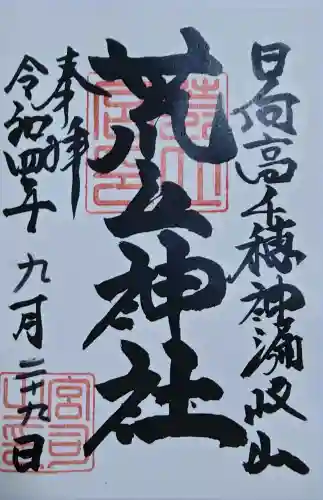 日向高千穂神漏岐山
荒立神社
奉拝
令和四年九月二十九日
宮司
之印